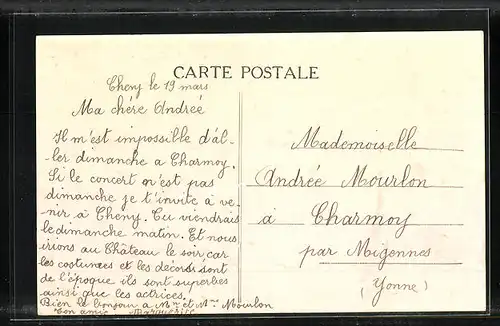 CARTE POSTALE
Cheny le 19 mars
Ma chère Andrée
Il m'est impossible d'al-
ler dimanche a Charmoy.
Si le concert n'est pas
dimanche je t'invite à ve-
nir à Cheny. Tu viendrais
le dimanche matin. Et nous
irions au Château le soir, car
les costumes et les décors sont
de l'époque ils sont superbes
ainsi que les actrices.
Bien le bonjour a Mr et Mme Mourlon
Ton amie Marguerite
Mademoiselle
Andrée Mourlon
à Charmoy
par Migennes
(Yonne)